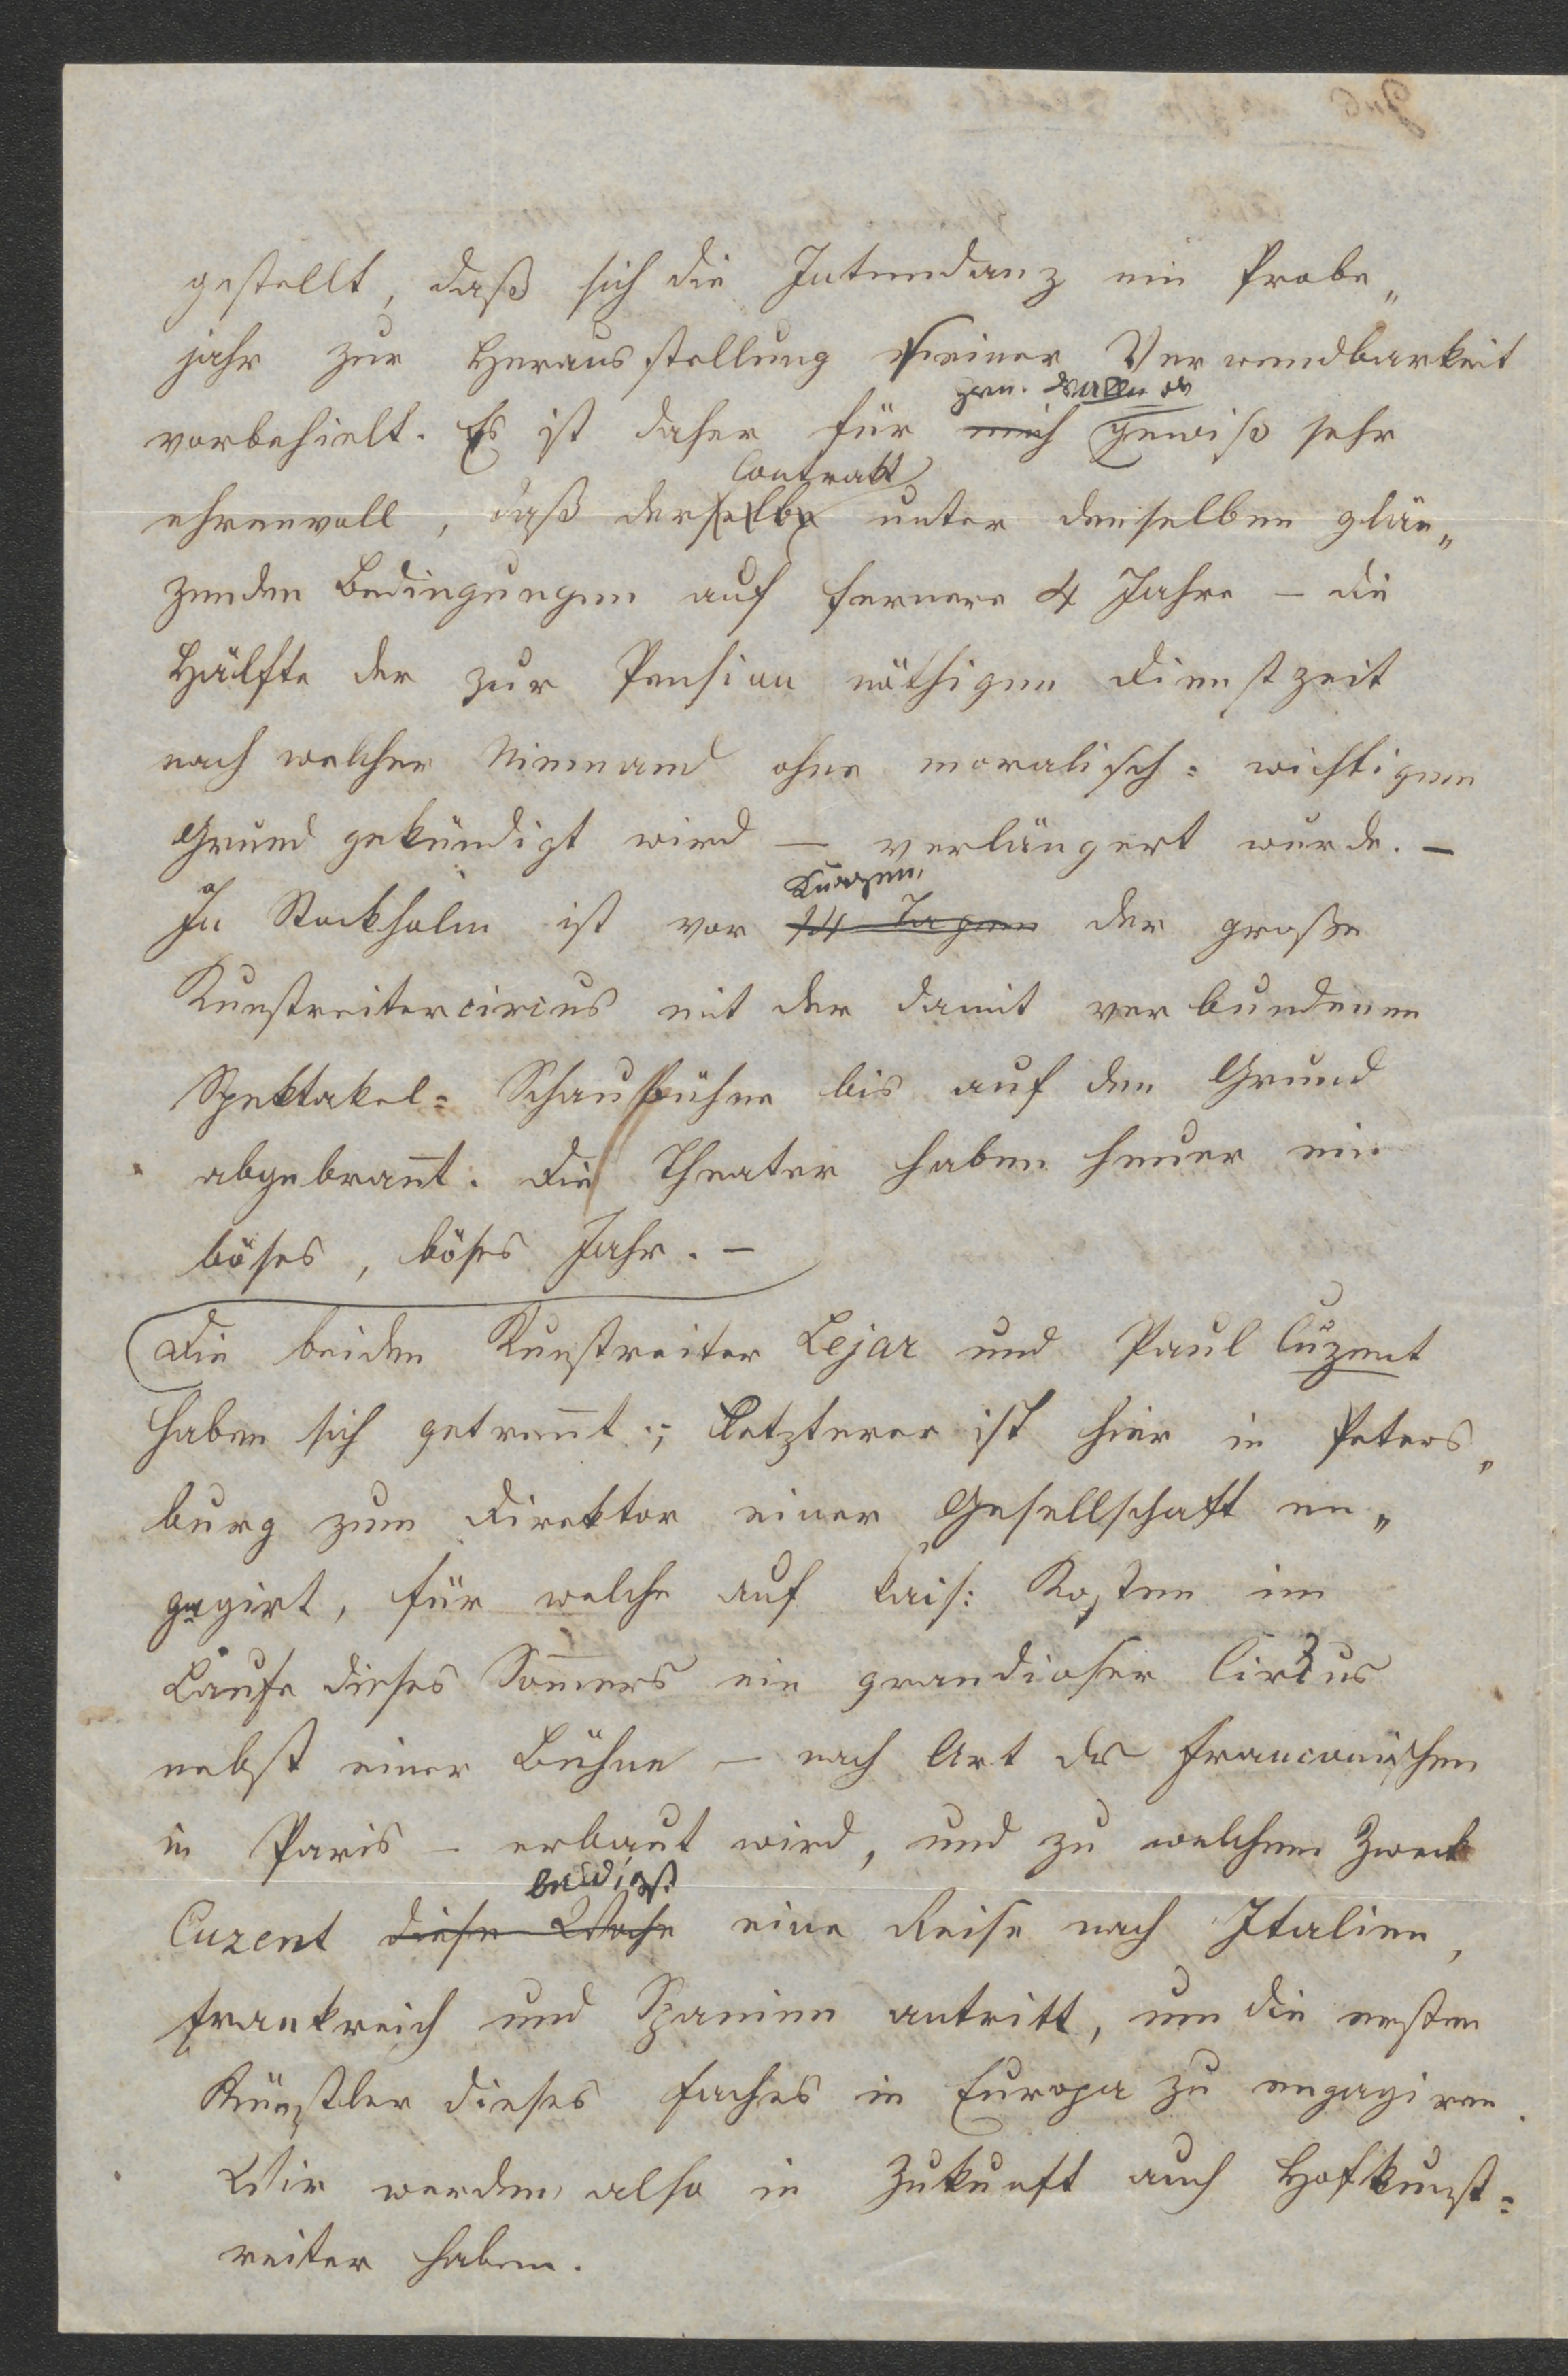 gestellt, daß sich die Intendanz ein Probe„
jahr zur Herausstellung seiner Verwendbarkeit
vorbehielt. Es ist daher für mich gewiß sehr
Contrakt
ehrenvoll, daß derselbe unter denselben glän„
zenden Bedingungen auf fernere 4 Jahre – die
Hälfte der zur Pension nöthigen Dienstzeit
nach welcher Niemand ohne moralisch= wichtigen
Grund gekündigt wird – verlängert wurde. –
Kurzem
In Stockholm ist vor 14 Tagen der große
Kunstreitercircus mit der damit verbundenen
Spektakel= Schaubühne bis auf den Grund
abgebrañt. Die Theater haben heuer ein
böses, böses Jahr. –
Die beiden Kunstreiter Lejar und Paul Cuzent
haben sich getreñt; Letzterer ist hier in Peters„
burg zum Direktor einer Gesellschaft en„
gagirt, für welche auf kais: Kosten im
Laufe dieses Som̄ers ein grandioser Circus
nebst einer Bühne – nach Art der Franconischen
in Paris – erbaut wird, und zu welchem Zweck
Cuzent diese Woche eine Reise nach Italien,
Frankreich und Spanien antritt, um die ersten
Künstler dieses Faches in Europa zu engagiren.
Wir werden also in Zukunft auch Hofkunst=
reiter haben.